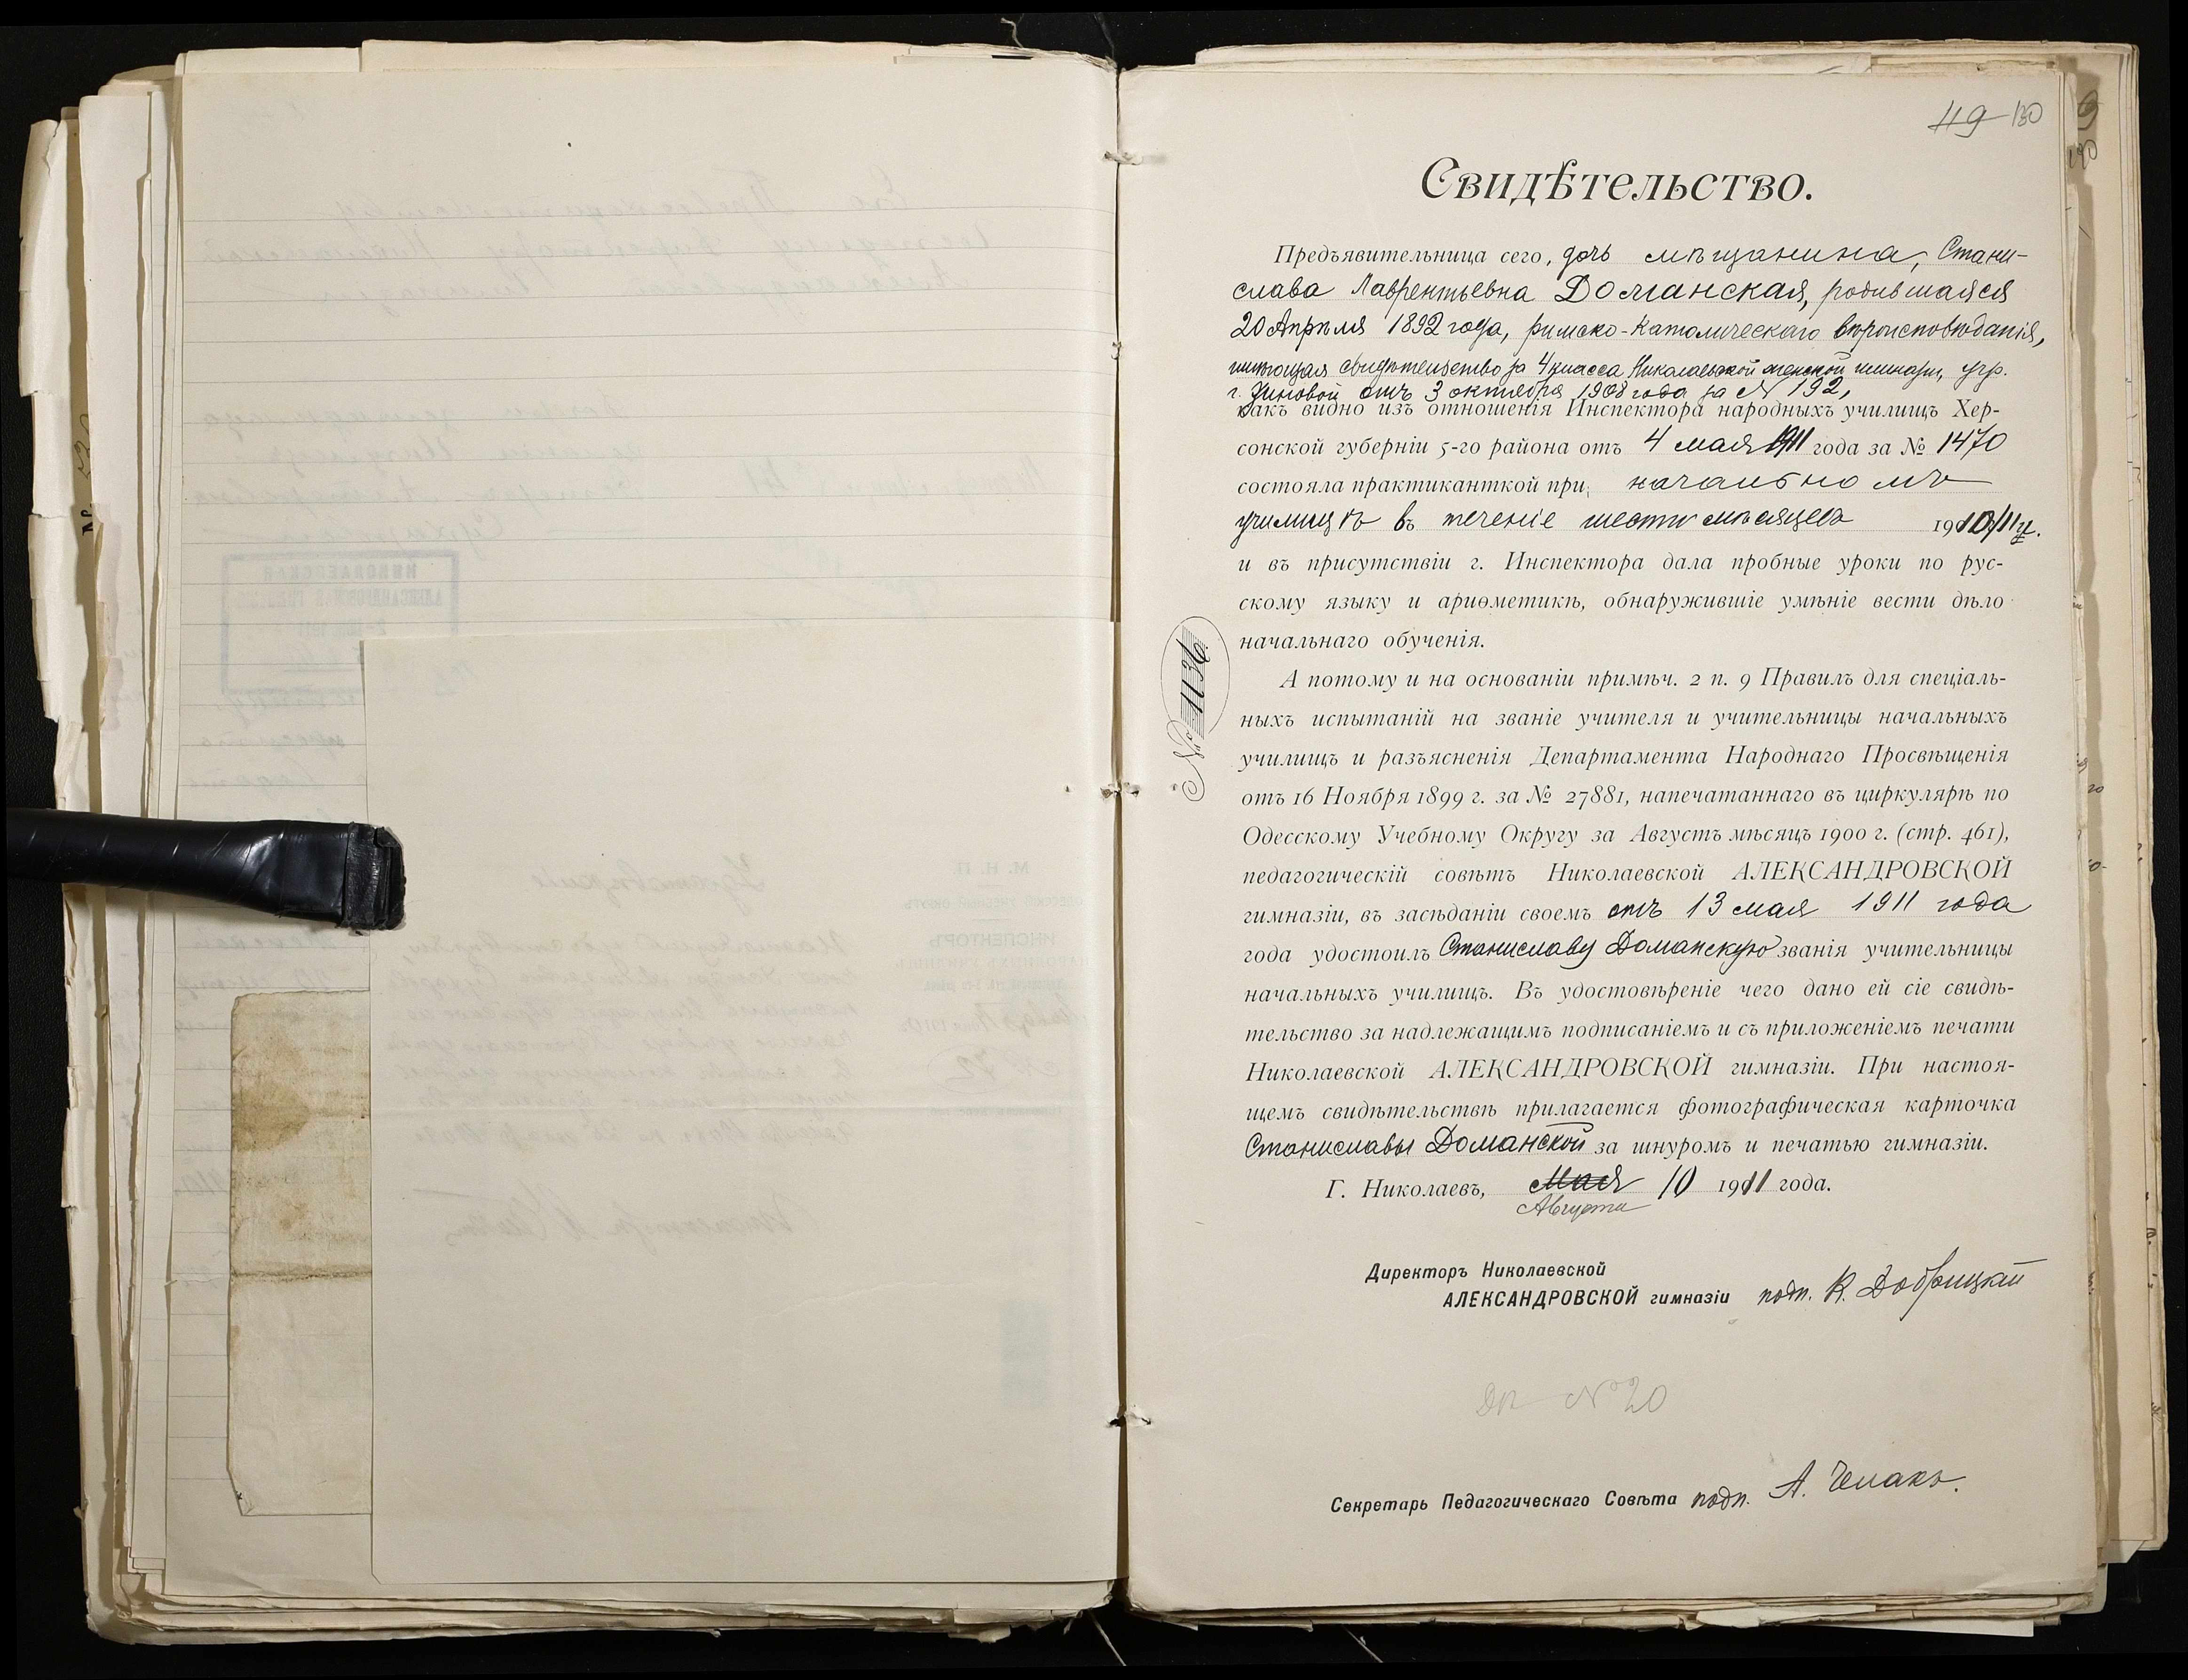 119 130
Свидѣтельство.
Предъявительница сего, дочь мѣщанина, Стани-
слава Лаврентьевна Доманская, родившаяся
20 Апрѣля 1892 года, римско-католическаго вѣроисповѣданія,
имѣющая свидѣтельство за 4 класса Николаевской женской гимназіи, учр.
г. Зиновой отъ 3 октября 1908 года за № 192,
какъ видно изъ отношенія Инспектора народныхъ училищъ Хер-
сонской губерніи 5-го района отъ 4 мая 1911 года за № 1470
состояла практиканткой при начальномъ
училищѣ въ теченіе шести мѣсяцевъ 1910/11 г.
и въ присутствіи г. Инспектора дала пробные уроки по рус-
скому языку и ариѳметикѣ, обнаружившіе умѣніе вести дѣло
начальнаго обученія.
№ 1136
А потому и на основаніи примѣч. 2 п. 9 Правилъ для спеціаль-
ныхъ испытаній на званіе учителя и учительницы начальныхъ
училищъ и разъясненія Департамента Народнаго Просвѣщенія
отъ 16 Ноября 1899 г. за № 27881, напечатаннаго въ циркулярѣ по
Одесскому Учебному Округу за Августъ мѣсяцъ 1900 г. (стр. 461),
педагогическій совѣтъ Николаевской АЛЕКСАНДРОВСКОЙ
гимназіи, въ засѣданіи своемъ отъ 13 мая 1911 года
года удостоилъ Станиславу Доманскую званія учительницы
начальныхъ училищъ. Въ удостовѣреніе чего дано ей сіе свидѣ-
тельство за надлежащимъ подписаніемъ и съ приложеніемъ печати
Николаевской АЛЕКСАНДРОВСКОЙ гимназіи. При настоя-
щемъ свидѣтельствѣ прилагается фотографическая карточка
Станиславы Доманской за шнуромъ и печатью гимназіи.
Г. Николаевъ, Мая 10 1911 года.
Августа
Директоръ Николаевской
АЛЕКСАНДРОВСКОЙ гимназіи подп. К. Добрицкій
№ 20
Секретарь Педагогическаго Совѣта подп. А.